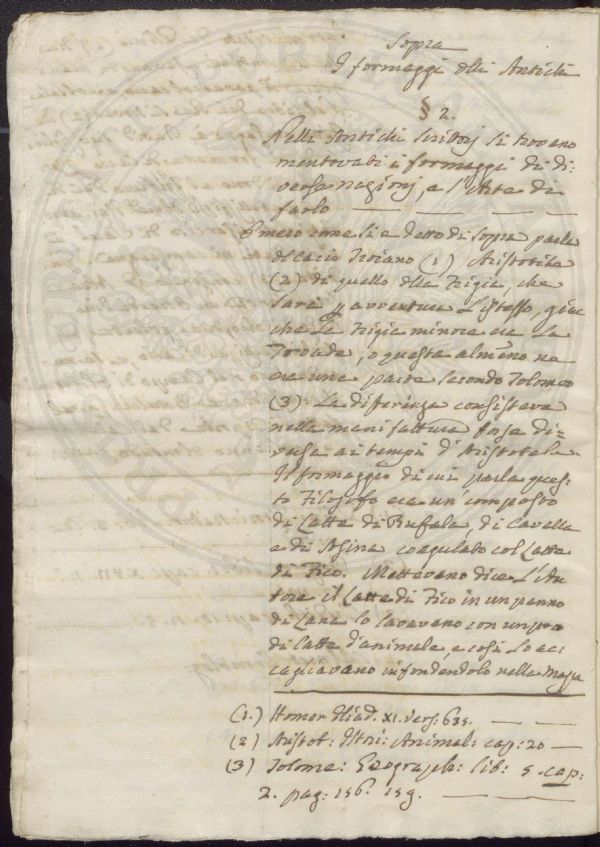 Sopra
I formaggi delli Antichi
§ 2.
Nelli Antichi Scrittorj si trovano
mentovati i formaggi di di:
verse nazionj, e l'Arte di
farlo
Omero come si e detto di sopra parla
del cacio Troiano (1) Aristotile
(2) di quello della Frigia, che
sarà p avventura l'istesso, giac
che la Frigia minore era la
Troade, o questa almeno ne
era una parte secondo Tolomeo
(3): La diferenza consisteva
nella manifattura forse di=
versa ai tempi d'Aristotele.
Il formaggio di cui parla ques:
to Filosofo era un composto
di Latte di Bufala, di Cavalla
e di Asina coagulato col Latte
di Fico. Mettevano dice l'Au
tore il Latte di Fico in un panno
di Lana lo lavavano con un poco
di latte d'animale, e così lo acc
cagliavano infondendolo nella massa
(1.) Homer Iliad. XI. vers: 639.
(2) Aristot: Istri: Animal: cap: 20
(3) Tolome: Geograph: lib: 5. cap:
2. pag: 156. 159.